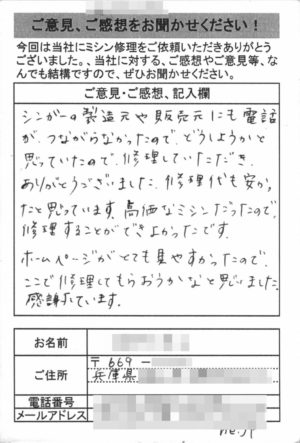 ご意見、ご感想をお聞かせください！
今回は当社にミシン修理をご依頼いただきありがとう
ございました。、当社に対する、ご感想やご意見等、な
んでも結構ですので、ぜひお聞かせください。
ご意見・ご感想、記入欄
シンガーの製造元や販売元にも電話
が、つながらなかったので、どうしようかと
思っていたので、修理していただき、
ありがとうございました。修理代も安かっ
たと思っています。高価なミシンだったので、
修理することができよかったです。
ホームページがとても見やすかったので、
ここで修理してもらおうかなと思いました。
感謝しています。
お名前
ご住所
〒669－
兵庫県
電話番号
メールアドレス
ne.jp